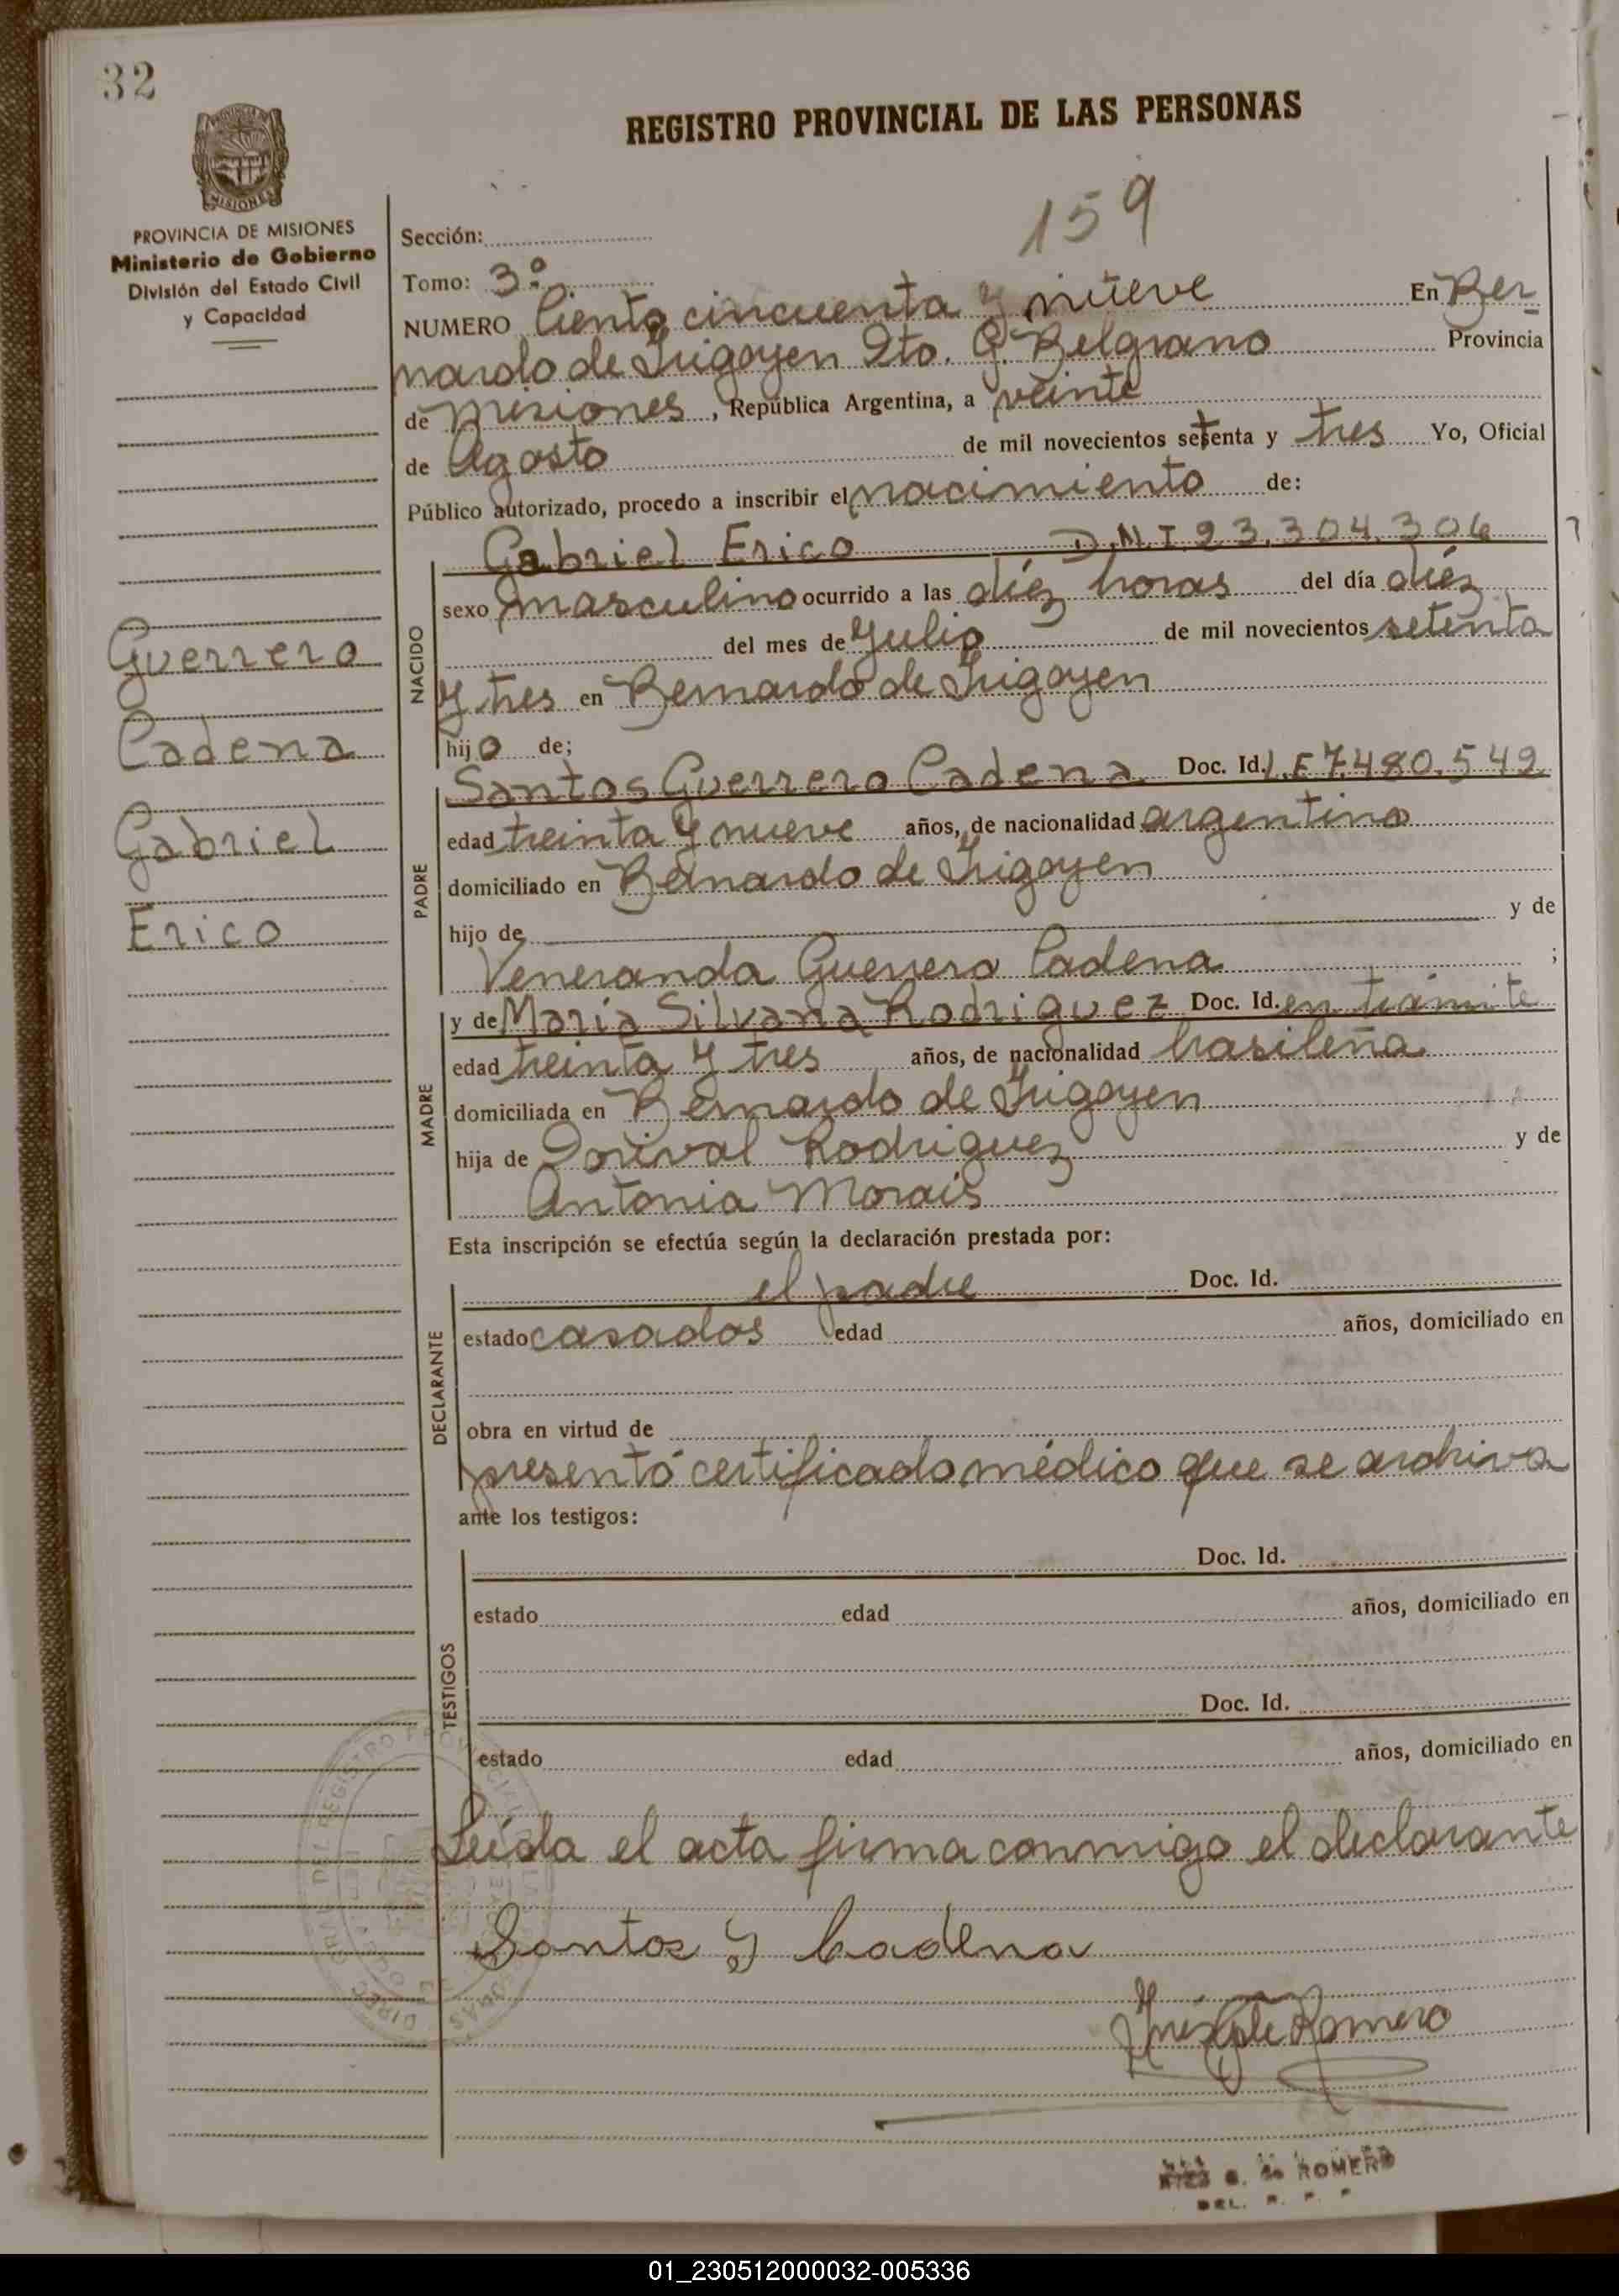 32
REGISTRO PROVINCIAL DE LAS PERSONAS
MISIONES
PROVINCIA DE MISIONES
Ministerio de Gobierno
División del Estado Civil
y Capacidad
159
Sección:
Tomo: 3º
NUMERO Ciento cincuenta y nueve En Ber=
nardo de Irigoyen Dto. G. Belgrano Provincia
de Misiones, República Argentina, a veinte
de Agosto de mil novecientos setenta y tres Yo, Oficial
Público autorizado, procedo a inscribir el nacimiento de:
Gabriel Erico D.N.I. 23.304.306
NACIDO
sexo masculino ocurrido a las diéz horas del día diéz
del mes de Julio de mil novecientos setenta
y tres en Bernardo de Irigoyen
hijo de;
Guerrero
Cadena
Gabriel
Erico
PADRE
Santos Guerrero Cadena Doc. Id. L.E 7.480.549
edad treinta y nueve años, de nacionalidad argentino
domiciliado en Bernardo de Irigoyen
hijo de y de
Veneranda Guerrero Cadena ;
MADRE
y de María Silvana Rodriguez Doc. Id. en trámite
edad treinta y tres años, de nacionalidad brasileña
domiciliada en Bernardo de Irigoyen
hija de Dorival Rodriguez y de
Antonia Morais
Esta inscripción se efectúa según la declaración prestada por:
DECLARANTE
el padre Doc. Id.
estado casados edad años, domiciliado en
obra en virtud de
presentó certificado médico que se archiva
ante los testigos:
TESTIGOS
Doc. Id.
estado edad años, domiciliado en
Doc. Id.
estado edad años, domiciliado en
Leída el acta firma conmigo el declarante
Santos G Cadena
Inés G de Romero
INES G. de ROMERO
DEL. R. P. P
01_230512000032-005336